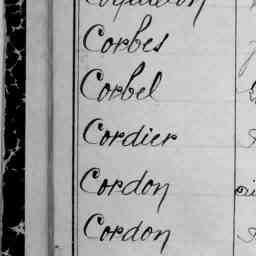 Corbes
Corbel
Cordier
Cordon
Cordon